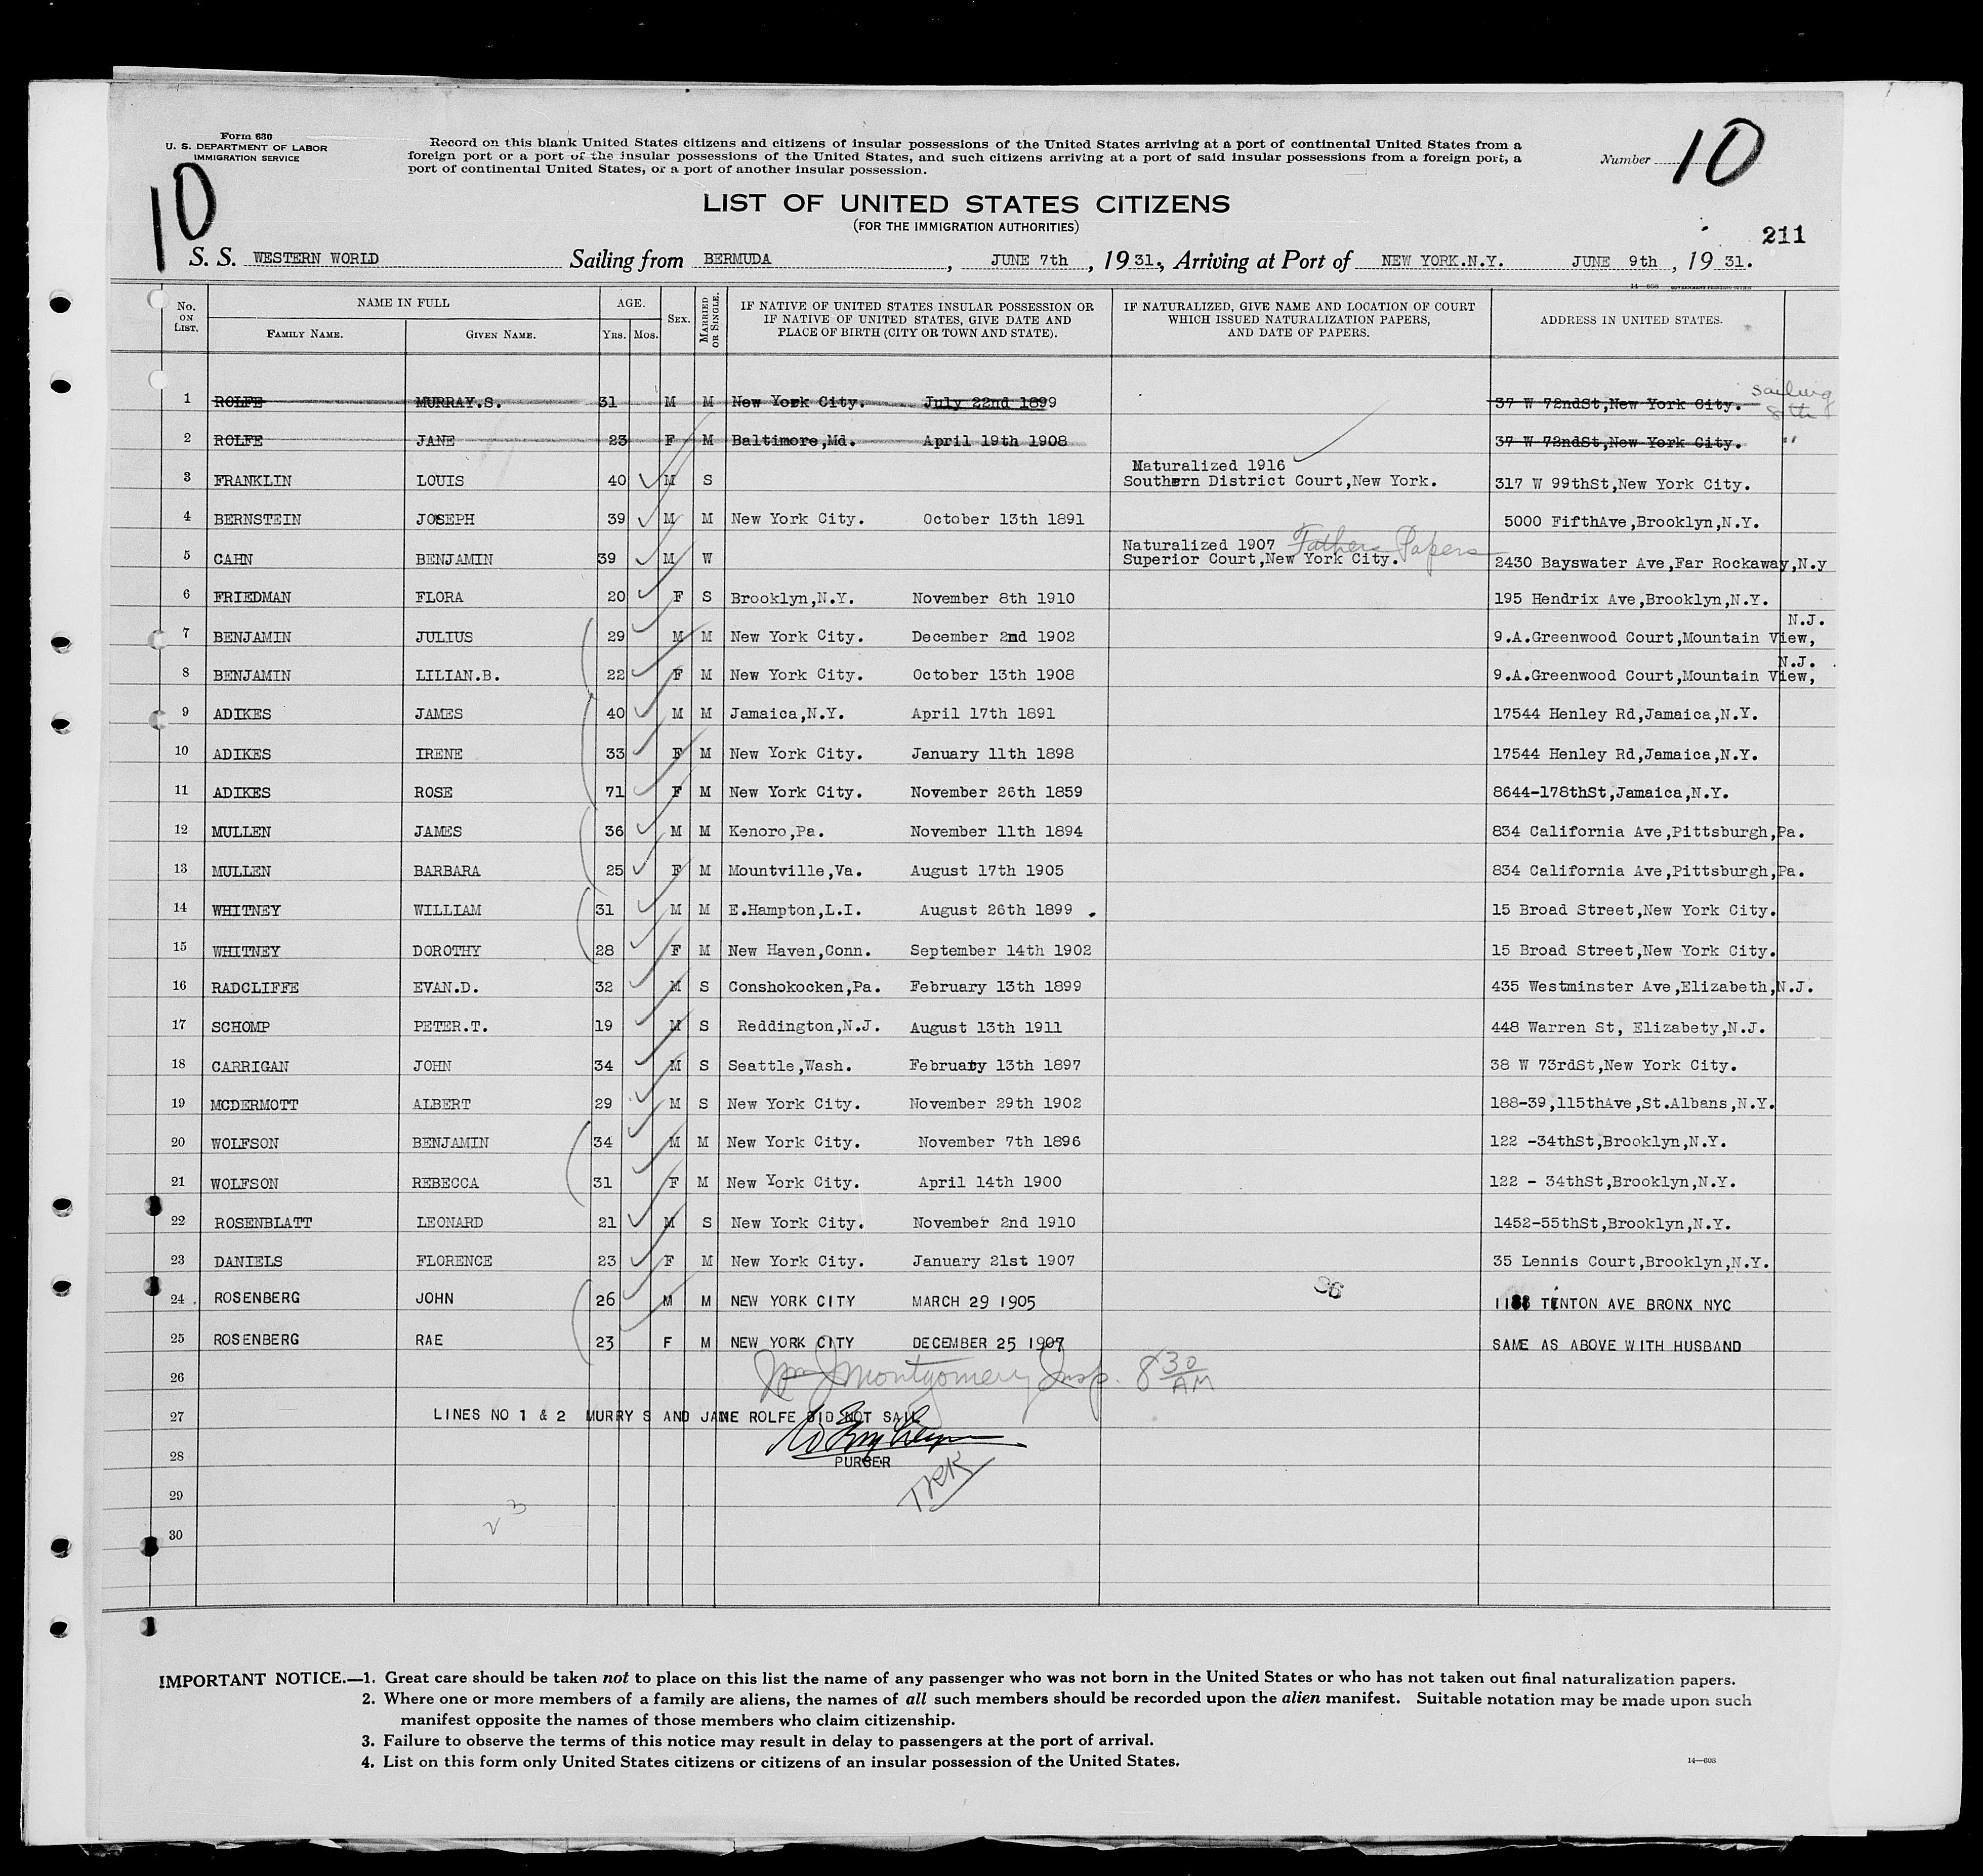 Form 630
U. S. DEPARTMENT OF LABOR
IMMIGRATION SERVICE
Record on this blank United States citizens and citizens of insular possessions of the United States arriving at a port of continental United States from a
foreign port or a port of the insular possessions of the United States, and such citizens arriving at a port of said insular possessions from a foreign port, a
port of continental United States, or a port of another insular possession.
Number 10
10
LIST OF UNITED STATES CITIZENS
(FOR THE IMMIGRATION AUTHORITIES)
211
S. S. WESTERN WORLD Sailing from BERMUDA, JUNE 7th, 1931., Arriving at Port of NEW YORK.N.Y. JUNE 9th, 1931.
14—608 GOVERNMENT PRINTING OFFICE
No. ON LIST. NAME IN FULL FAMILY NAME. GIVEN NAME. AGE. Yrs. Mos. SEX. MARRIED OR SINGLE. IF NATIVE OF UNITED STATES INSULAR POSSESSION OR IF NATIVE OF UNITED STATES, GIVE DATE AND PLACE OF BIRTH (CITY OR TOWN AND STATE). IF NATURALIZED, GIVE NAME AND LOCATION OF COURT WHICH ISSUED NATURALIZATION PAPERS, AND DATE OF PAPERS. ADDRESS IN UNITED STATES.
1 ROLFE MURRAY.S. 31 M M New York City. July 22nd 1899 37 W 72ndSt,New York City. sailing 8th
2 ROLFE JANE 23 F M Baltimore,Md. April 19th 1908 37 W 72ndSt,New York City. "
3 FRANKLIN LOUIS 40 M S Naturalized 1916 Southern District Court,New York. 317 W 99thSt,New York City.
4 BERNSTEIN JOSEPH 39 M M New York City. October 13th 1891 5000 FifthAve,Brooklyn,N.Y.
5 CAHN BENJAMIN 39 M W Naturalized 1907 Fathers Papers Superior Court,New York City. 2430 Bayswater Ave,Far Rockaway,N.y
6 FRIEDMAN FLORA 20 F S Brooklyn,N.Y. November 8th 1910 195 Hendrix Ave,Brooklyn,N.Y.
7 BENJAMIN JULIUS 29 M M New York City. December 2nd 1902 9.A.Greenwood Court,Mountain View, N.J.
8 BENJAMIN LILIAN.B. 22 F M New York City. October 13th 1908 9.A.Greenwood Court,Mountain View, N.J.
9 ADIKES JAMES 40 M M Jamaica,N.Y. April 17th 1891 17544 Henley Rd,Jamaica,N.Y.
10 ADIKES IRENE 33 F M New York City. January 11th 1898 17544 Henley Rd,Jamaica,N.Y.
11 ADIKES ROSE 71 F M New York City. November 26th 1859 8644-178thSt,Jamaica,N.Y.
12 MULLEN JAMES 36 M M Kenoro,Pa. November 11th 1894 834 California Ave,Pittsburgh,Pa.
13 MULLEN BARBARA 25 F M Mountville,Va. August 17th 1905 834 California Ave,Pittsburgh,Pa.
14 WHITNEY WILLIAM 31 M M E.Hampton,L.I. August 26th 1899 . 15 Broad Street,New York City.
15 WHITNEY DOROTHY 28 F M New Haven,Conn. September 14th 1902 15 Broad Street,New York City.
16 RADCLIFFE EVAN.D. 32 M S Conshokocken,Pa. February 13th 1899 435 Westminster Ave,Elizabeth,N.J.
17 SCHOMP PETER.T. 19 M S Reddington,N.J. August 13th 1911 448 Warren St, Elizabety,N.J.
18 CARRIGAN JOHN 34 M S Seattle,Wash. February 13th 1897 38 W 73rdSt,New York City.
19 MCDERMOTT ALBERT 29 M S New York City. November 29th 1902 188-39,115thAve,St.Albans,N.Y.
20 WOLFSON BENJAMIN 34 M M New York City. November 7th 1896 122 -34thSt,Brooklyn,N.Y.
21 WOLFSON REBECCA 31 F M New York City. April 14th 1900 122 - 34thSt,Brooklyn,N.Y.
22 ROSENBLATT LEONARD 21 M S New York City. November 2nd 1910 1452-55thSt,Brooklyn,N.Y.
23 DANIELS FLORENCE 23 F M New York City. January 21st 1907 35 Lennis Court,Brooklyn,N.Y.
24 ROSENBERG JOHN 26 M M NEW YORK CITY MARCH 29 1905 TINTON AVE BRONX NYC
25 ROSENBERG RAE 23 F M NEW YORK CITY DECEMBER 25 1907 SAME AS ABOVE WITH HUSBAND
26 Wm J Montgomery Insp. 8 30 AM
27 LINES NO 1 & 2 MURRY S AND JANE ROLFE DID NOT SAIL
28 PURSER
29
30
IMPORTANT NOTICE.—1. Great care should be taken not to place on this list the name of any passenger who was not born in the United States or who has not taken out final naturalization papers.
2. Where one or more members of a family are aliens, the names of all such members should be recorded upon the alien manifest. Suitable notation may be made upon such
manifest opposite the names of those members who claim citizenship.
3. Failure to observe the terms of this notice may result in delay to passengers at the port of arrival.
4. List on this form only United States citizens or citizens of an insular possession of the United States.
14—608